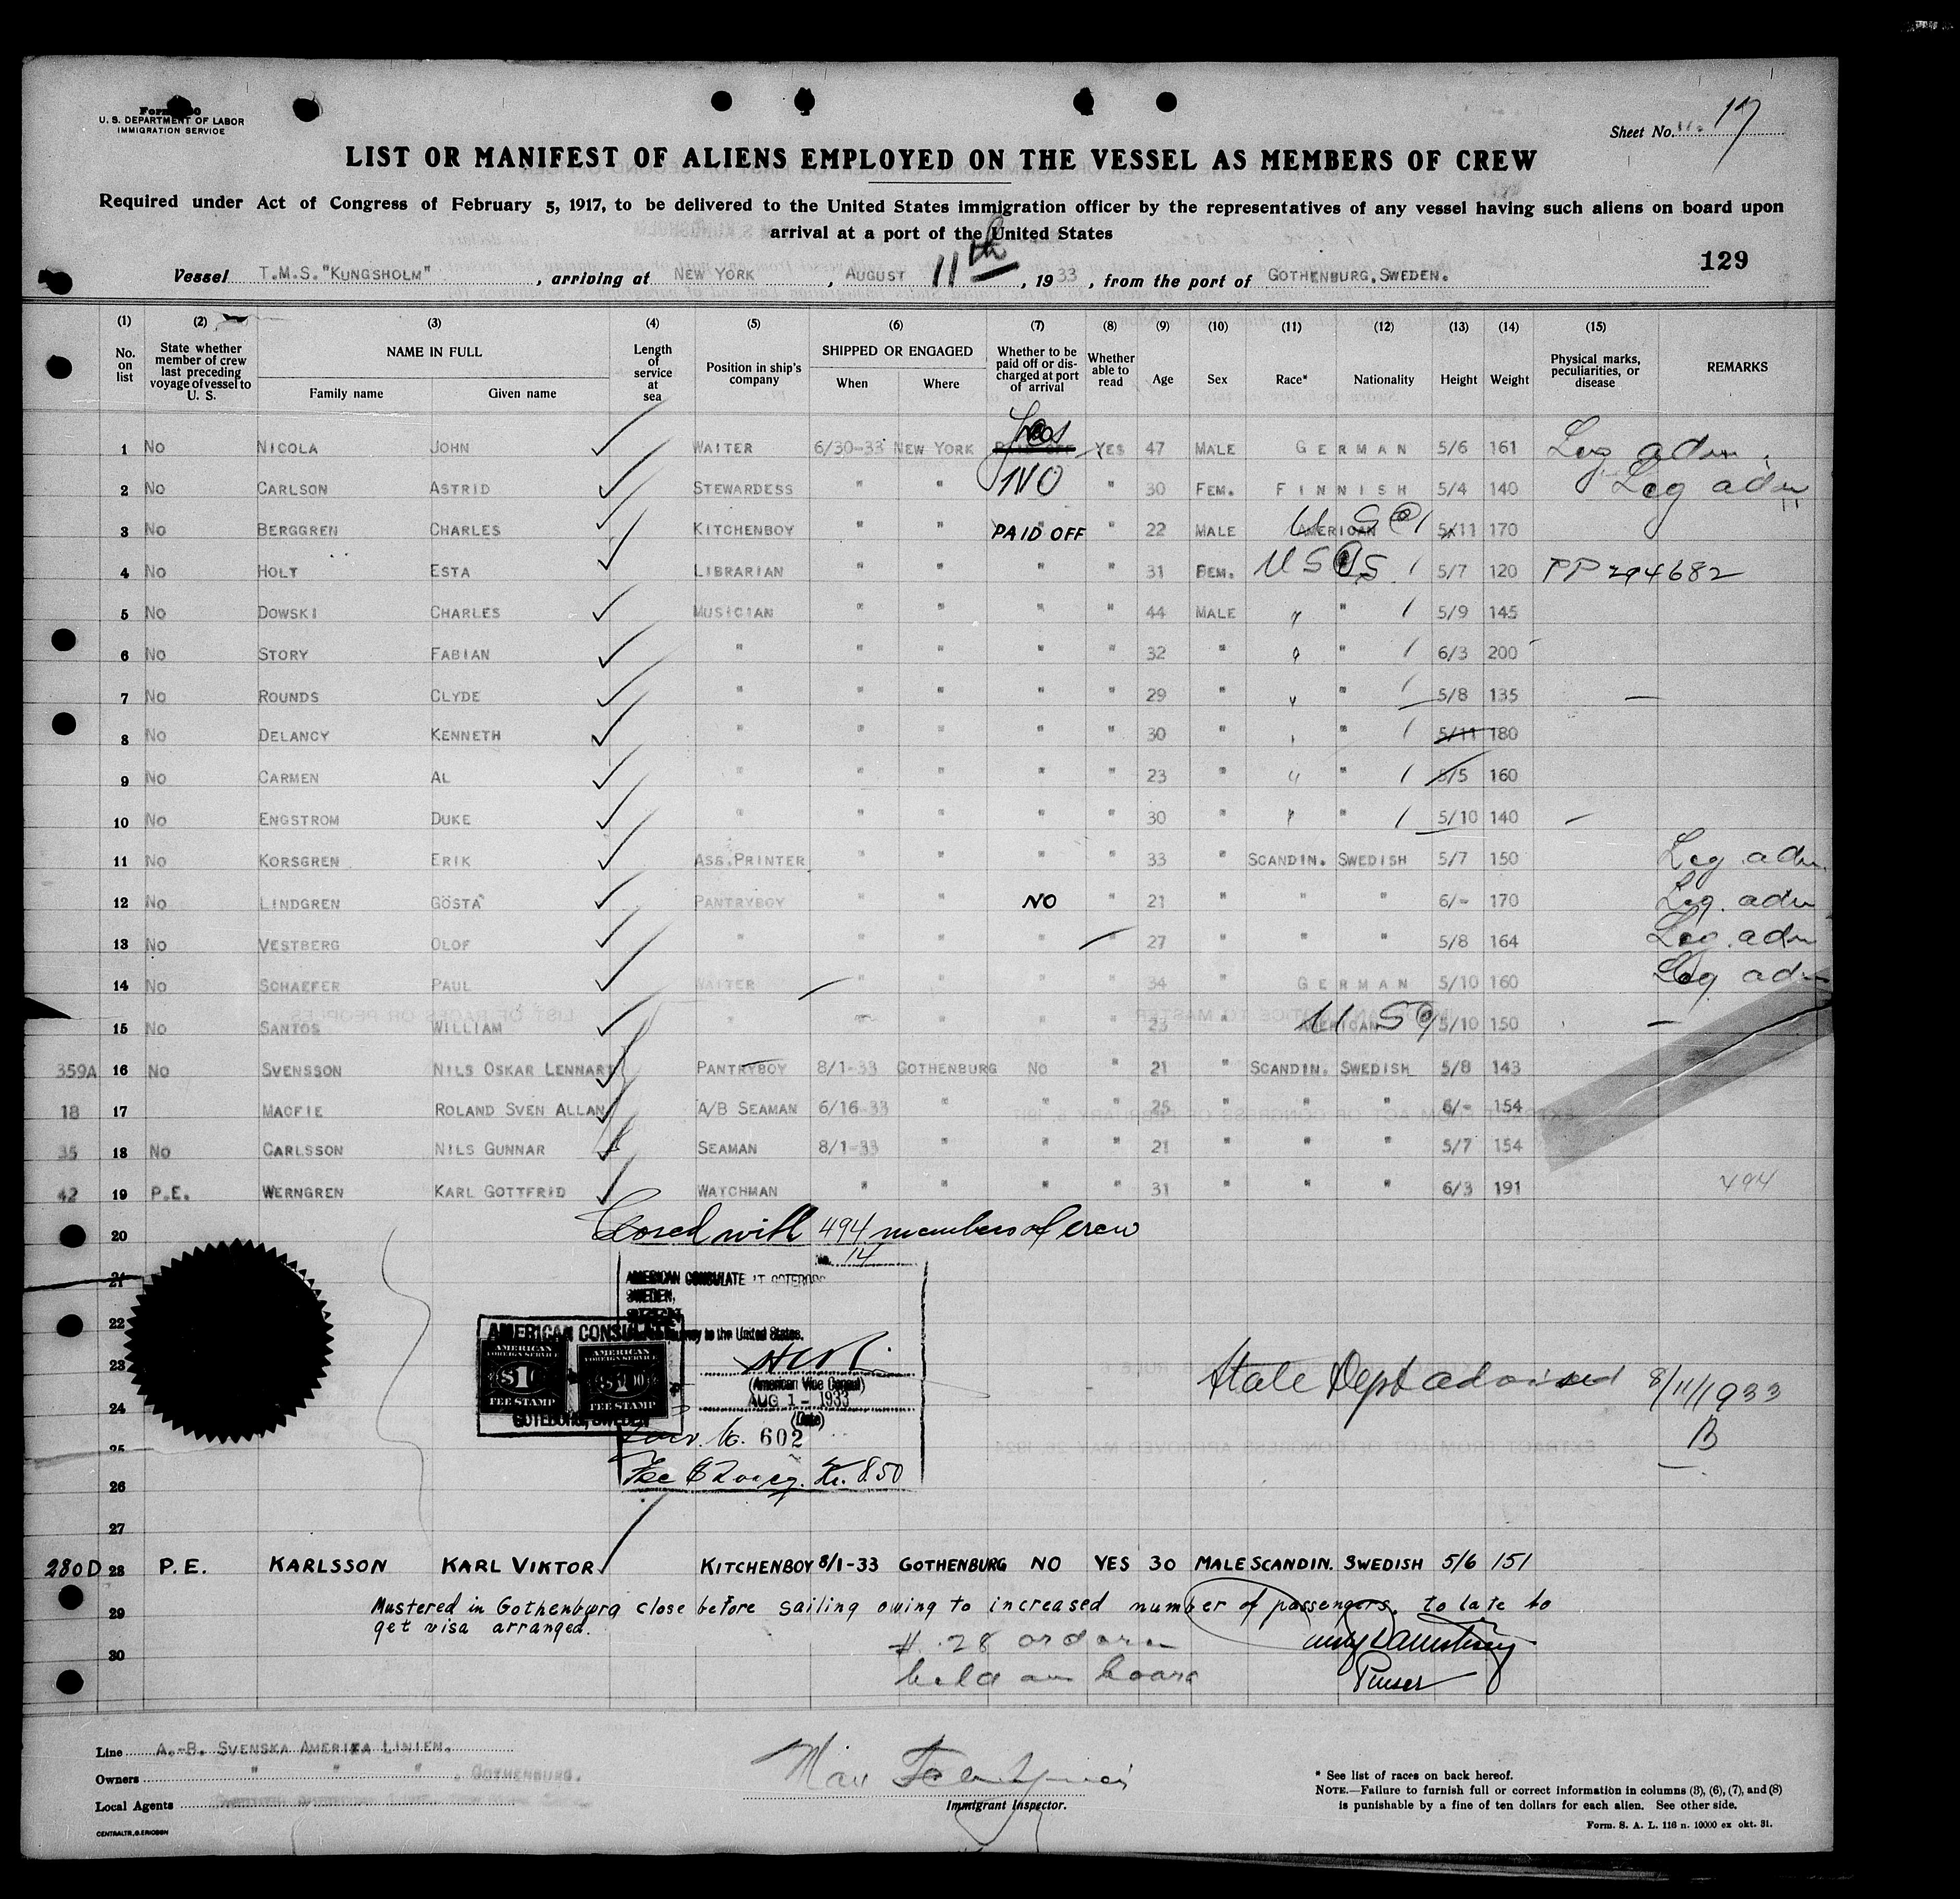 Form 680
U. S. DEPARTMENT OF LABOR
IMMIGRATION SERVICE
Sheet No. 17
LIST OR MANIFEST OF ALIENS EMPLOYED ON THE VESSEL AS MEMBERS OF CREW
Required under Act of Congress of February 5, 1917, to be delivered to the United States immigration officer by the representatives of any vessel having such aliens on board upon
arrival at a port of the United States
129
Vessel T.M.S. "KUNGSHOLM" , arriving at NEW YORK , AUGUST 11th , 1933 , from the port of GOTHENBURG, SWEDEN.
(1) (2) (3) (4) (5) (6) (7) (8) (9) (10) (11) (12) (13) (14) (15)
No. on list State whether member of crew last preceding voyage of vessel to U. S. NAME IN FULL Family name Given name Length of service at sea Position in ship's company SHIPPED OR ENGAGED When Where Whether to be paid off or discharged at port of arrival Whether able to read Age Sex Race* Nationality Height Weight Physical marks, peculiarities, or disease REMARKS
1 NO NICOLA JOHN WAITER 6/30-33 NEW YORK YES 47 MALE GERMAN 5/6 161 Leg adm
2 NO CARLSON ASTRID STEWARDESS " " NO " 30 FEM. FINNISH 5/4 140 Leg adm
3 NO BERGGREN CHARLES KITCHENBOY " " PAID OFF " 22 MALE AMERICAN U S @ / 5/11 170
4 NO HOLT ESTA LIBRARIAN " " " " 31 FEM. U S / 5/7 120 PP 294682
5 NO DOWSKI CHARLES MUSICIAN " " " " 44 MALE " " / 5/9 145
6 NO STORY FABIAN " " " " " 32 " " " / 6/3 200
7 NO ROUNDS CLYDE " " " " " 29 " " " / 5/8 135 —
8 NO DELANCY KENNETH " " " " " 30 " " " / 5/11 180
9 NO CARMEN AL " " " " " 23 " " " / 5/5 160
10 NO ENGSTROM DUKE " " " " " 30 " " " / 5/10 140
11 NO KORSGREN ERIK ASS.PRINTER " " " " 33 " SCANDIN. SWEDISH 5/7 150 Leg. adm
12 NO LINDGREN GÖSTA PANTRYBOY " " NO " 21 " " " 6/- 170 Leg. adm
13 NO VESTBERG OLOF " " " " " 27 " " " 5/8 164 Leg. adm
14 NO SCHAEFER PAUL WAITER " " " " 34 " GERMAN 5/10 160 Leg adm
15 NO SANTOS WILLIAM " " " " " 23 " AMERICAN U S @ 5/10 150 —
359A 16 NO SVENSSON NILS OSKAR LENNART PANTRYBOY 8/1-33 GOTHENBURG NO " 21 " SCANDIN. SWEDISH 5/8 143
18 17 MACFIE ROLAND SVEN ALLAN A/B SEAMAN 6/16-33 " " " 25 " " " 6/- 154
35 18 NO CARLSSON NILS GUNNAR SEAMAN 8/1-33 " " " 21 " " " 5/7 154
42 19 P.E. WERNGREN KARL GOTTFRID WATCHMAN " " " " 31 " " " 6/3 191 494
20 Closed with 494 members of crew
No. 14
21
AMERICAN CONSULATE AT GOTEBORG
SWEDEN,
22
journey to the United States.
AMERICAN CONSULATE
AMERICAN FOREIGN SERVICE $1 FEE STAMP
AMERICAN FOREIGN SERVICE $1.00 FEE STAMP
GOTEBORG, SWEDEN
23
(American Vice Consul)
AUG 1 - 1933
(Date)
State Dept advised 8/11/1933
B
24
25
Serv. No. 602
Fee $2 = eq. Kr. 8.50
26
27
280D 28 P.E. KARLSSON KARL VIKTOR KITCHENBOY 8/1-33 GOTHENBURG NO YES 30 MALE SCANDIN. SWEDISH 5/6 151
29 Mustered in Gothenburg close before sailing owing to increased number of passengers, to late to
get visa arranged.
30
# 28 ordered
held on board
Purser
Line A.-B. SVENSKA AMERIKA LINIEN.
Owners " " " , GOTHENBURG.
Local Agents
Immigrant Inspector.
* See list of races on back hereof.
NOTE.—Failure to furnish full or correct information in columns (3), (6), (7), and (8)
is punishable by a fine of ten dollars for each alien. See other side.
Form. S. A. L. 116 n. 10000 ex okt. 31.
CENTRALTR., G. ERICSON